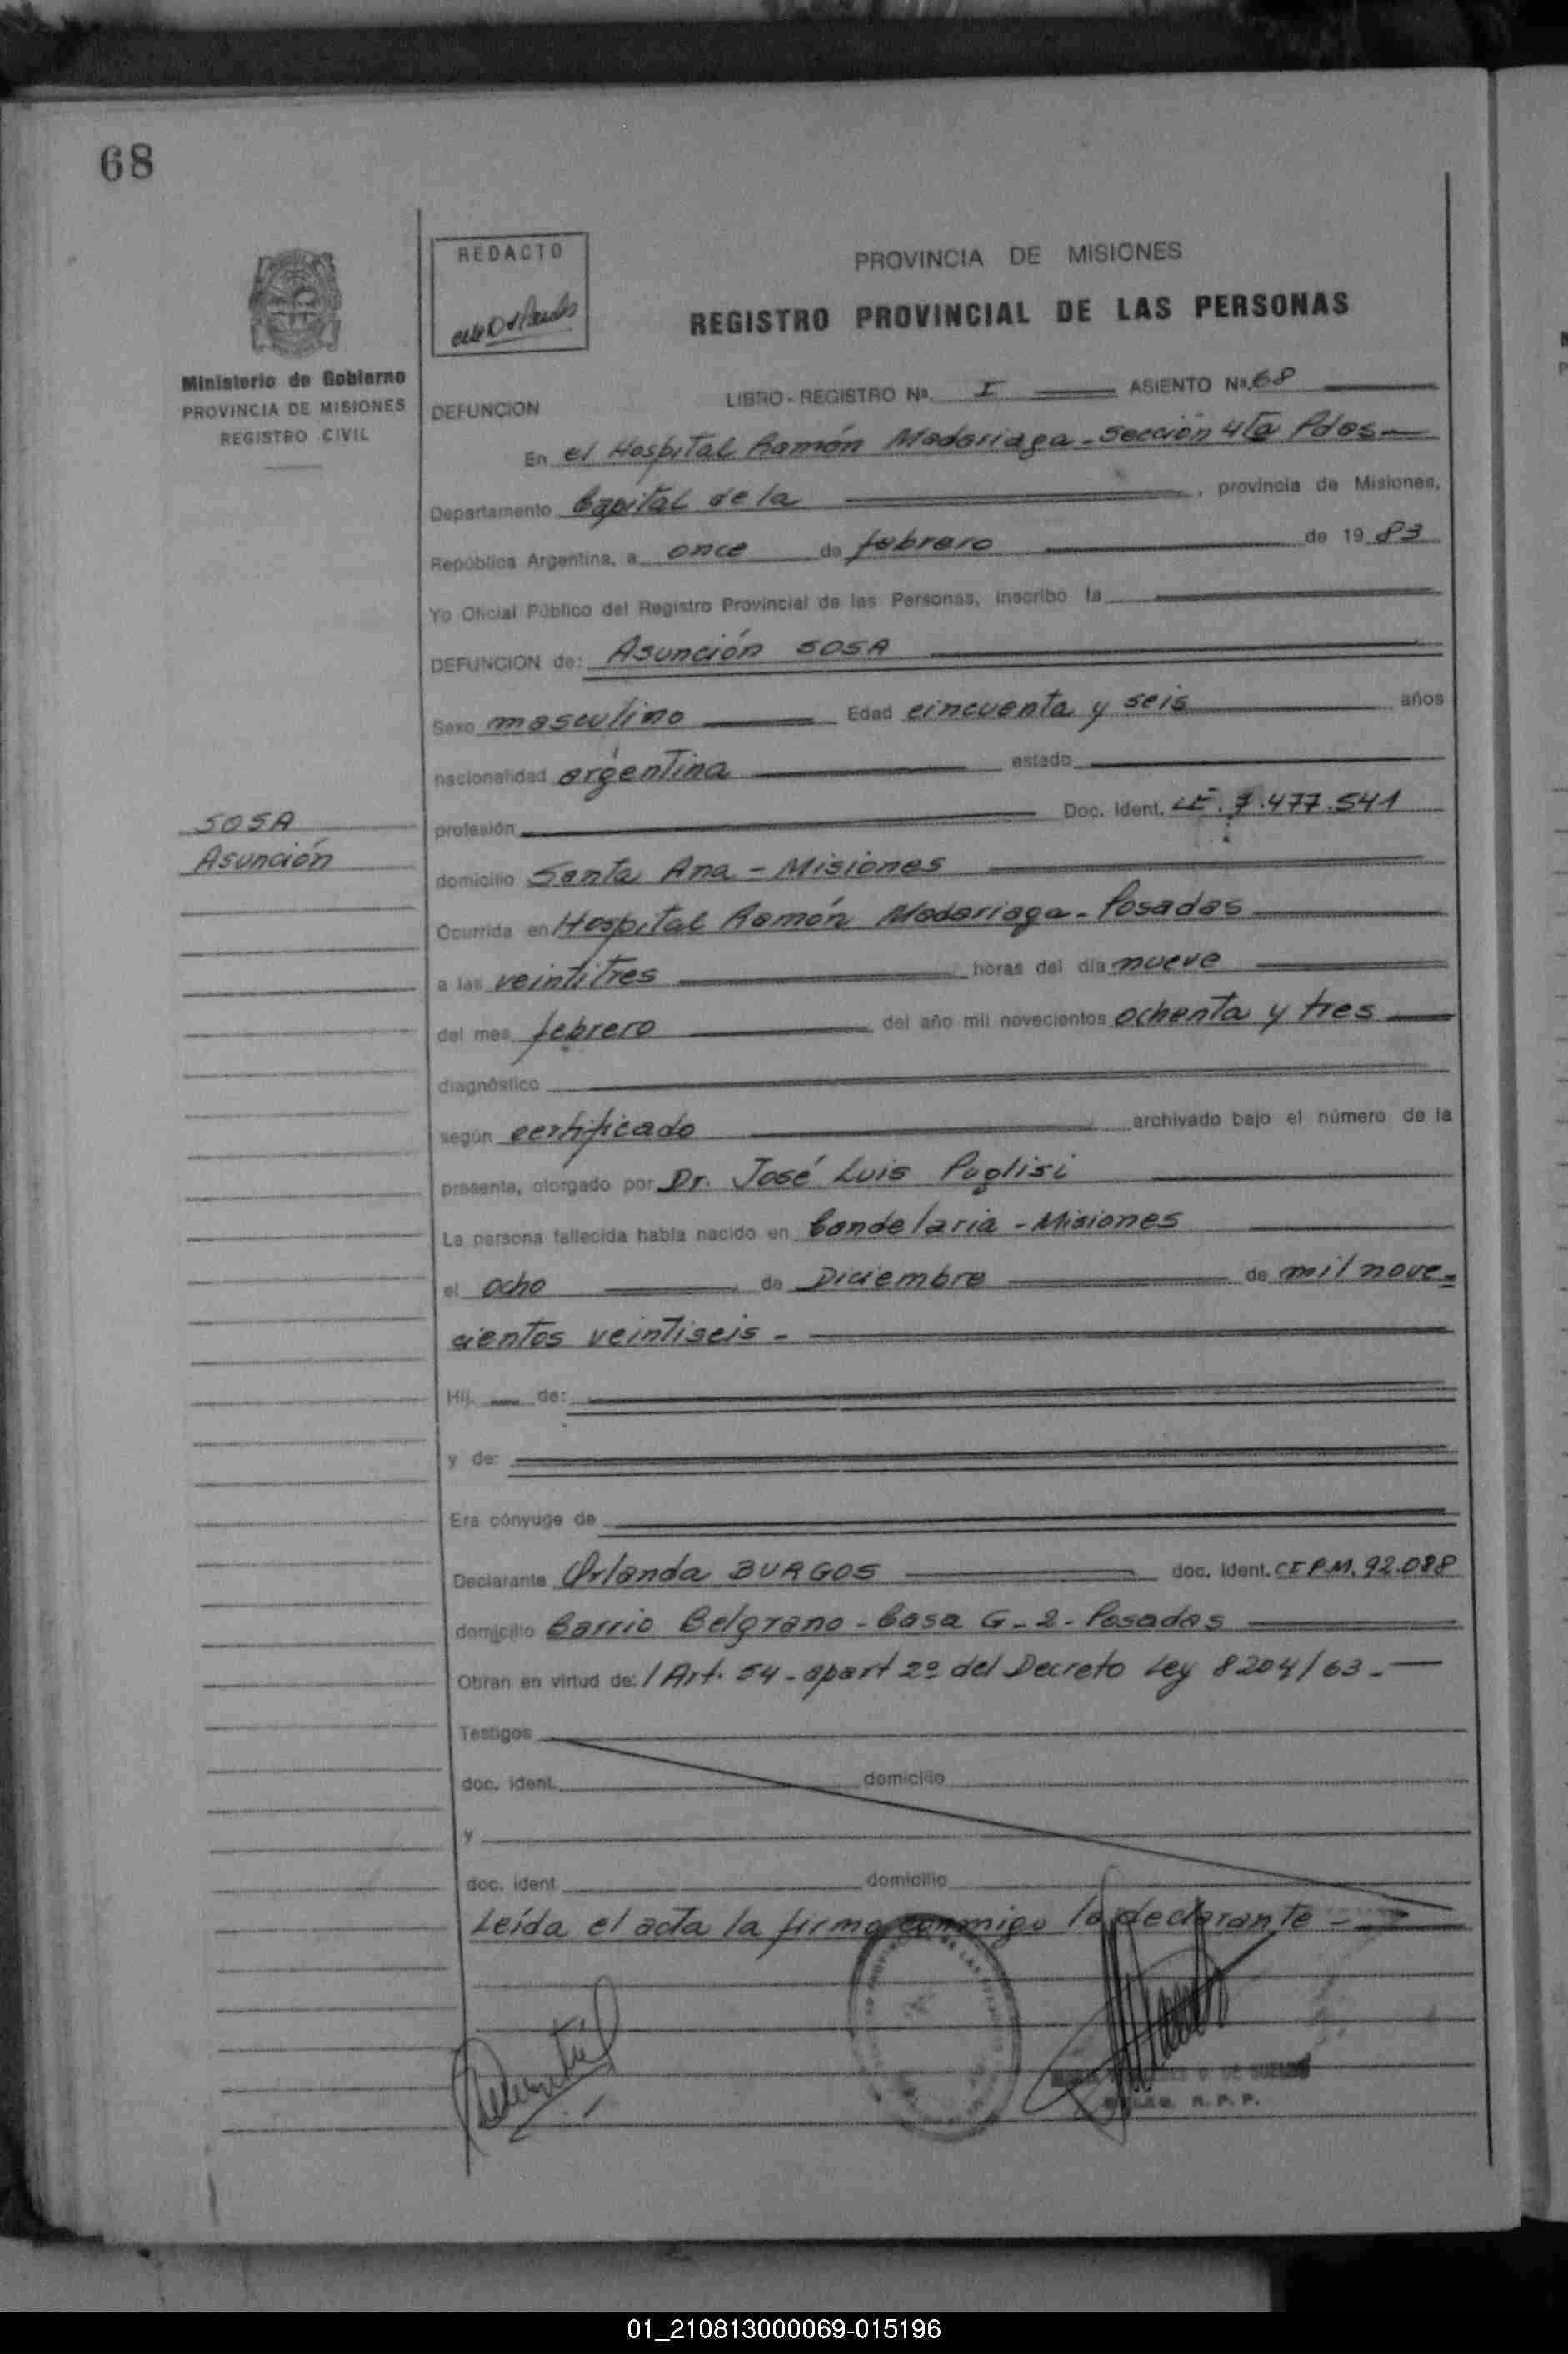 68
REDACTO
PROVINCIA DE MISIONES
REGISTRO PROVINCIAL DE LAS PERSONAS
Ministerio de Gobierno
PROVINCIA DE MISIONES
REGISTRO CIVIL
DEFUNCION
LIBRO - REGISTRO Nº. I ASIENTO Nº. 68
En el Hospital Ramón Madariaga - Sección 4ta Pdas
Departamento Capital de la , provincia de Misiones,
República Argentina, a once de febrero de 19 83
Yo Oficial Público del Registro Provincial de las Personas, inscribo la
DEFUNCION de: Asunción SOSA
Sexo masculino Edad cincuenta y seis años
nacionalidad argentina estado
SOSA
Asunción
profesión Doc. Ident. LE. 7.477.541
domicilio Santa Ana - Misiones
Ocurrida en Hospital Ramón Madariaga - Posadas
a las veintitres horas del día nueve
del mes febrero del año mil novecientos ochenta y tres
diagnóstico
según certificado archivado bajo el número de la
presente, otorgado por Dr. José Luis Puglisi
La persona fallecida había nacido en Candelaria - Misiones
el ocho de Diciembre de mil nove-
cientos veintiseis -
Hij de:
y de:
Era cónyuge de
Declarante Orlanda BURGOS doc. ident. CEPM. 92.088
domicilio Barrio Belgrano - Casa G-2 - Posadas
Obran en virtud de: / Art. 54 - apart 2º del Decreto Ley 8204/63 -
Testigos
doc. ident. domicilio
y
doc. ident domicilio
Leída el acta la firma conmigo la declarante -
R. P. P.
01_210813000069-015196